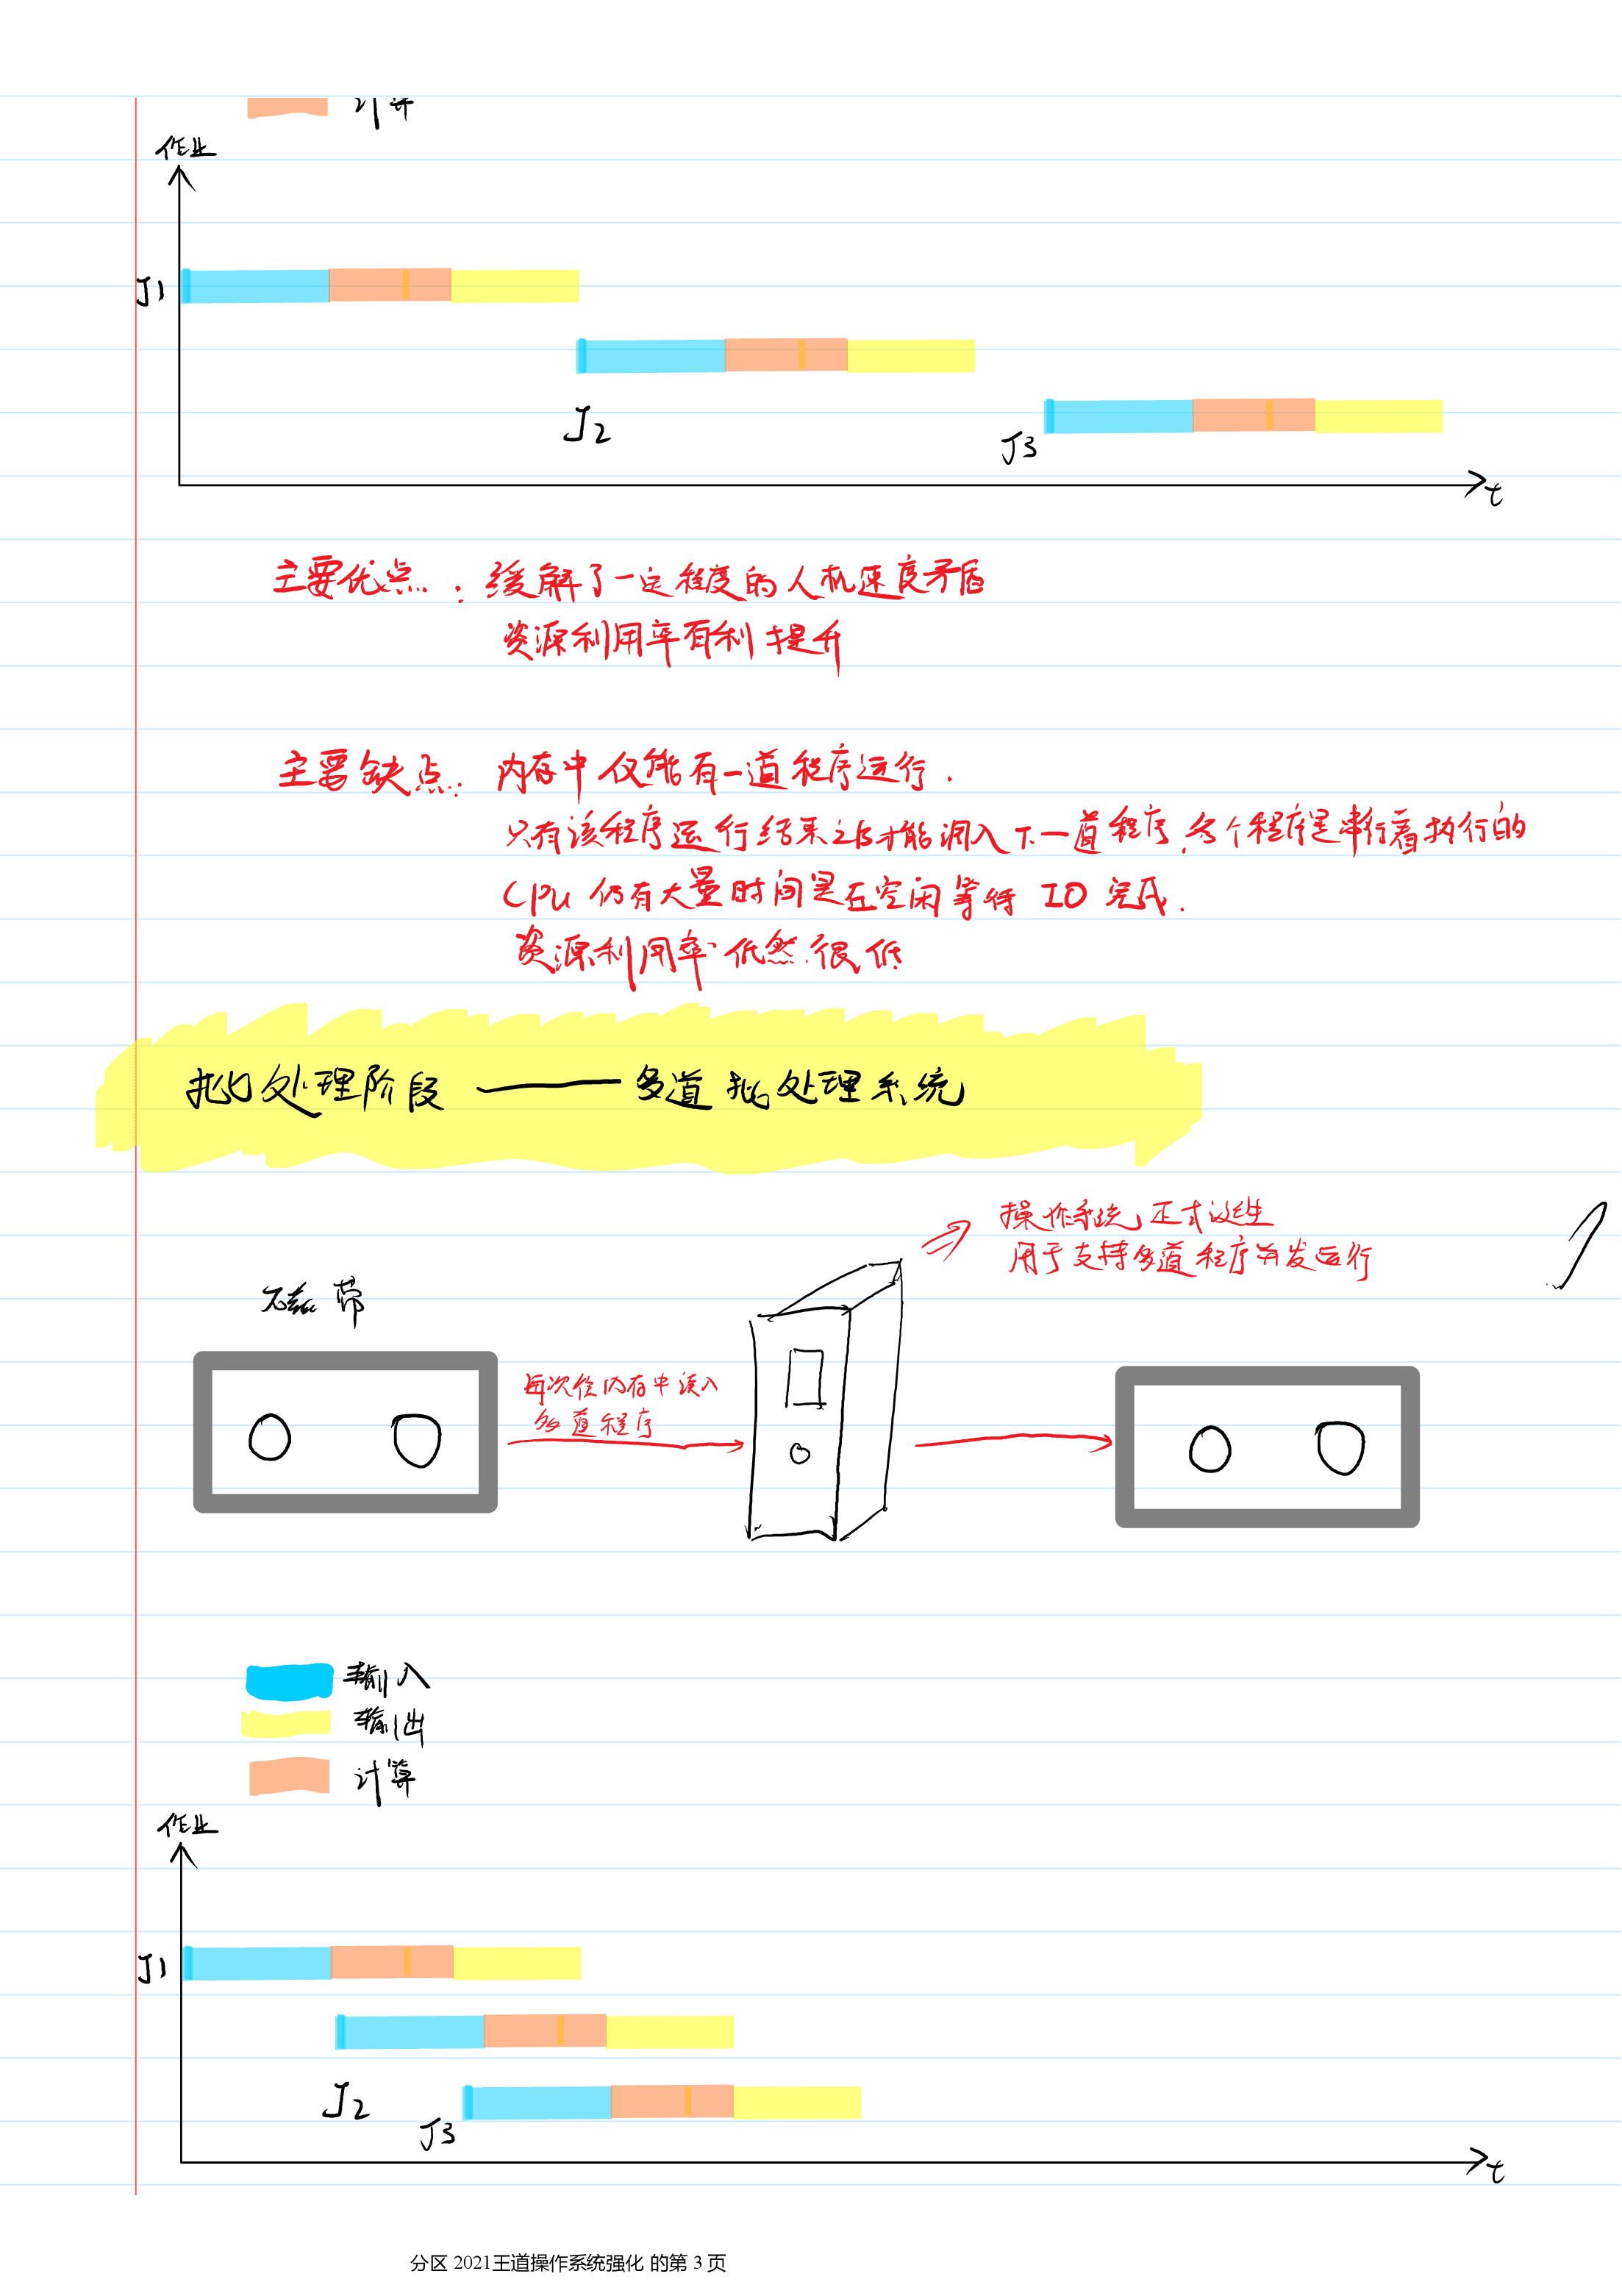 计算
作业
J1
J2
J3
t
主要优点:缓解了一定程度的人机速度矛盾
资源利用率有利提升
主要缺点:内存中仅能有一道程序运行.
只有该程序运行结束之后才能调入下一道程序,各个程序是串行着执行的
CPU 仍有大量时间是在空闲等待 IO 完成.
资源利用率依然很低
批处理阶段 —— 多道批处理系统
操作系统正式诞生
用于支持多道程序并发运行
磁带
每次往内存中读入
多道程序
输入
输出
计算
作业
J1
J2
J3
t
分区 2021王道操作系统强化 的第 3 页